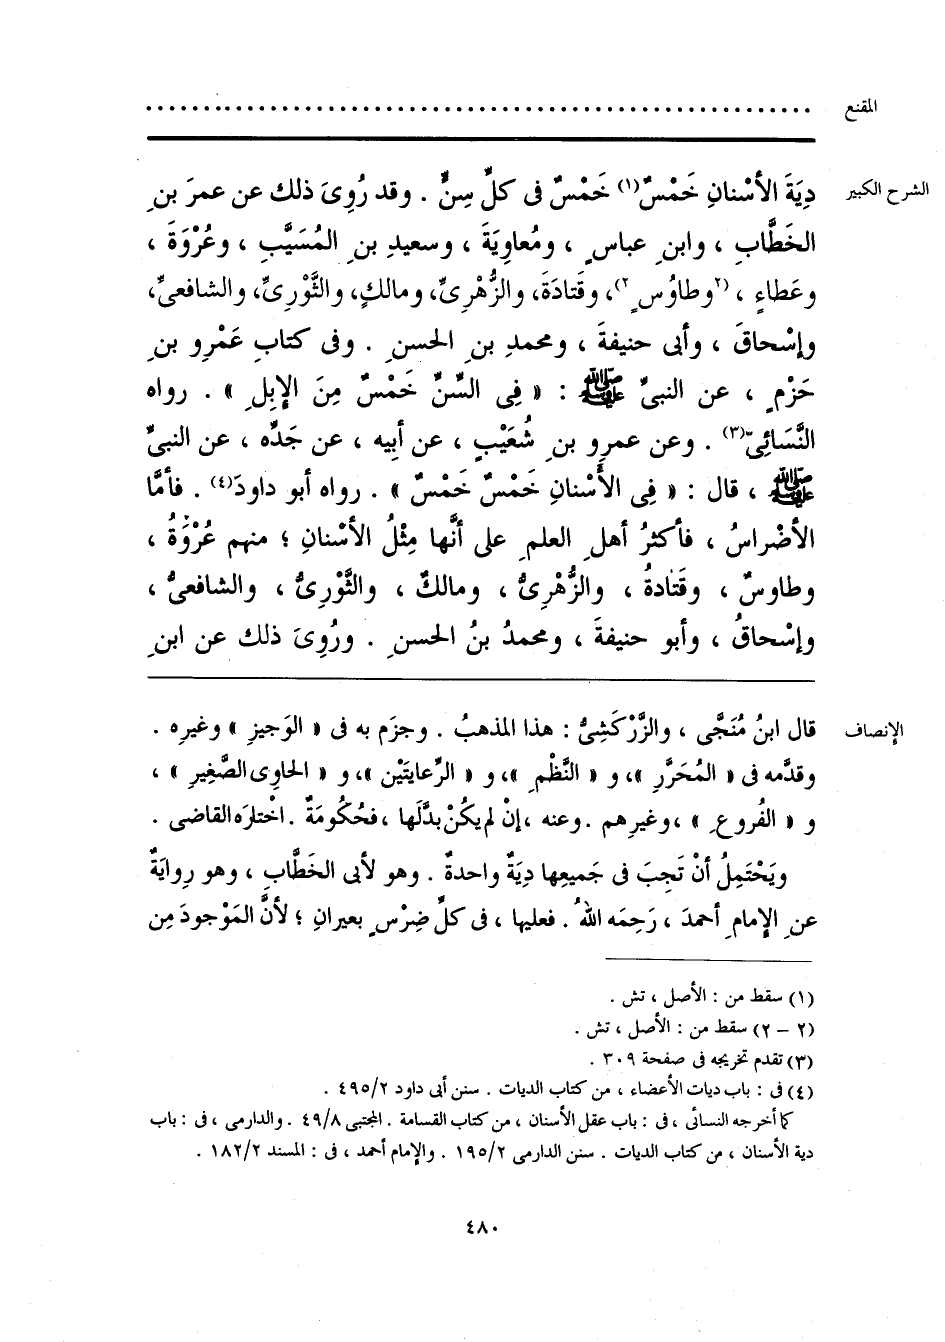 المقنع ............................................................
الشرح الكبير دِيَةَ الأسْنانِ خَمْسٌ(١) خَمْسٌ فى كلِّ سِنٍّ . وقد رُوِىَ ذلك عن عمرَ بنِ
الخَطَّابِ ، وابنِ عباسٍ ، ومُعاوِيَةَ ، وسعيدِ بنِ المُسَيَّبِ ، وعُرْوَةَ ،
وعَطاءٍ ، (٢وطاوُسٍ٢)، وقَتادَةَ، والزُّهْرِىِّ، ومالكٍ، والثَّوْرِىِّ، والشافعىِّ،
وإسْحاقَ ، وأبى حنيفةَ ، ومحمدِ بنِ الحسنِ . وفى كتابِ عَمْرِو بنِ
حَزْمٍ ، عن النبىِّ ﷺ : « فِى السِّنِّ خَمْسٌ مِنَ الإِبِلِ » . رواه
النَّسَائِىُّ(٣) . وعن عمرِو بنِ شُعَيْبٍ ، عن أبِيه ، عن جَدِّه ، عن النبىِّ
ﷺ ، قال : « فِى الأَسْنانِ خَمْسٌ خَمْسٌ » . رواه أبو داودَ(٤) . فأمَّا
الأضْراسُ ، فأكثرُ أهلِ العلمِ على أنَّها مِثْلُ الأسْنانِ ؛ منهم عُرْوَةُ ،
وطاوسٌ ، وقَتادةُ ، والزُّهْرِىُّ ، ومالكٌ ، والثَّوْرِىُّ ، والشافعىُّ ،
وإسْحاقُ ، وأبو حنيفةَ ، ومحمدُ بنُ الحسنِ . ورُوِىَ ذلك عن ابنِ
الإنصاف قال ابنُ مُنَجَّى ، والزَّرْكَشِىُّ : هذا المذهبُ . وجزَم به فى « الوَجيزِ » وغيرِه .
وقدَّمه فى « المُحَرَّرِ »، و « النَّظْمِ »، و « الرِّعايتَيْن »، و « الحاوِى الصَّغِيرِ » ،
و « الفُروعِ » ، وغيرِهم . وعنه ، إنْ لم يكُنْ بدَّلَها ، فحُكُومَةٌ . اخْتارَه القاضى .
ويَحْتَمِلُ أنْ تَجِبَ فى جَميعِها دِيَةٌ واحدةٌ . وهو لأبى الخَطَّابِ ، وهو رِوايَةٌ
عنِ الإمامِ أحمدَ ، رَحِمَه اللهُ . فعليها ، فى كلِّ ضِرْسٍ بعيرانِ ؛ لأنَّ المَوْجودَ مِن
(١) سقط من : الأصل ، تش .
(٢ – ٢) سقط من : الأصل ، تش .
(٣) تقدم تخريجه فى صفحة ٣٠٩ .
(٤) فى : باب ديات الأعضاء ، من كتاب الديات . سنن أبى داود ٤٩٥/٢ .
كما أخرجه النسائى ، فى : باب عقل الأسنان ، من كتاب القسامة . المجتبى ٤٩/٨ . والدارمى ، فى : باب
دية الأسنان ، من كتاب الديات . سنن الدارمى ١٩٥/٢ . والإمام أحمد ، فى : المسند ١٨٢/٢ .
٤٨٠